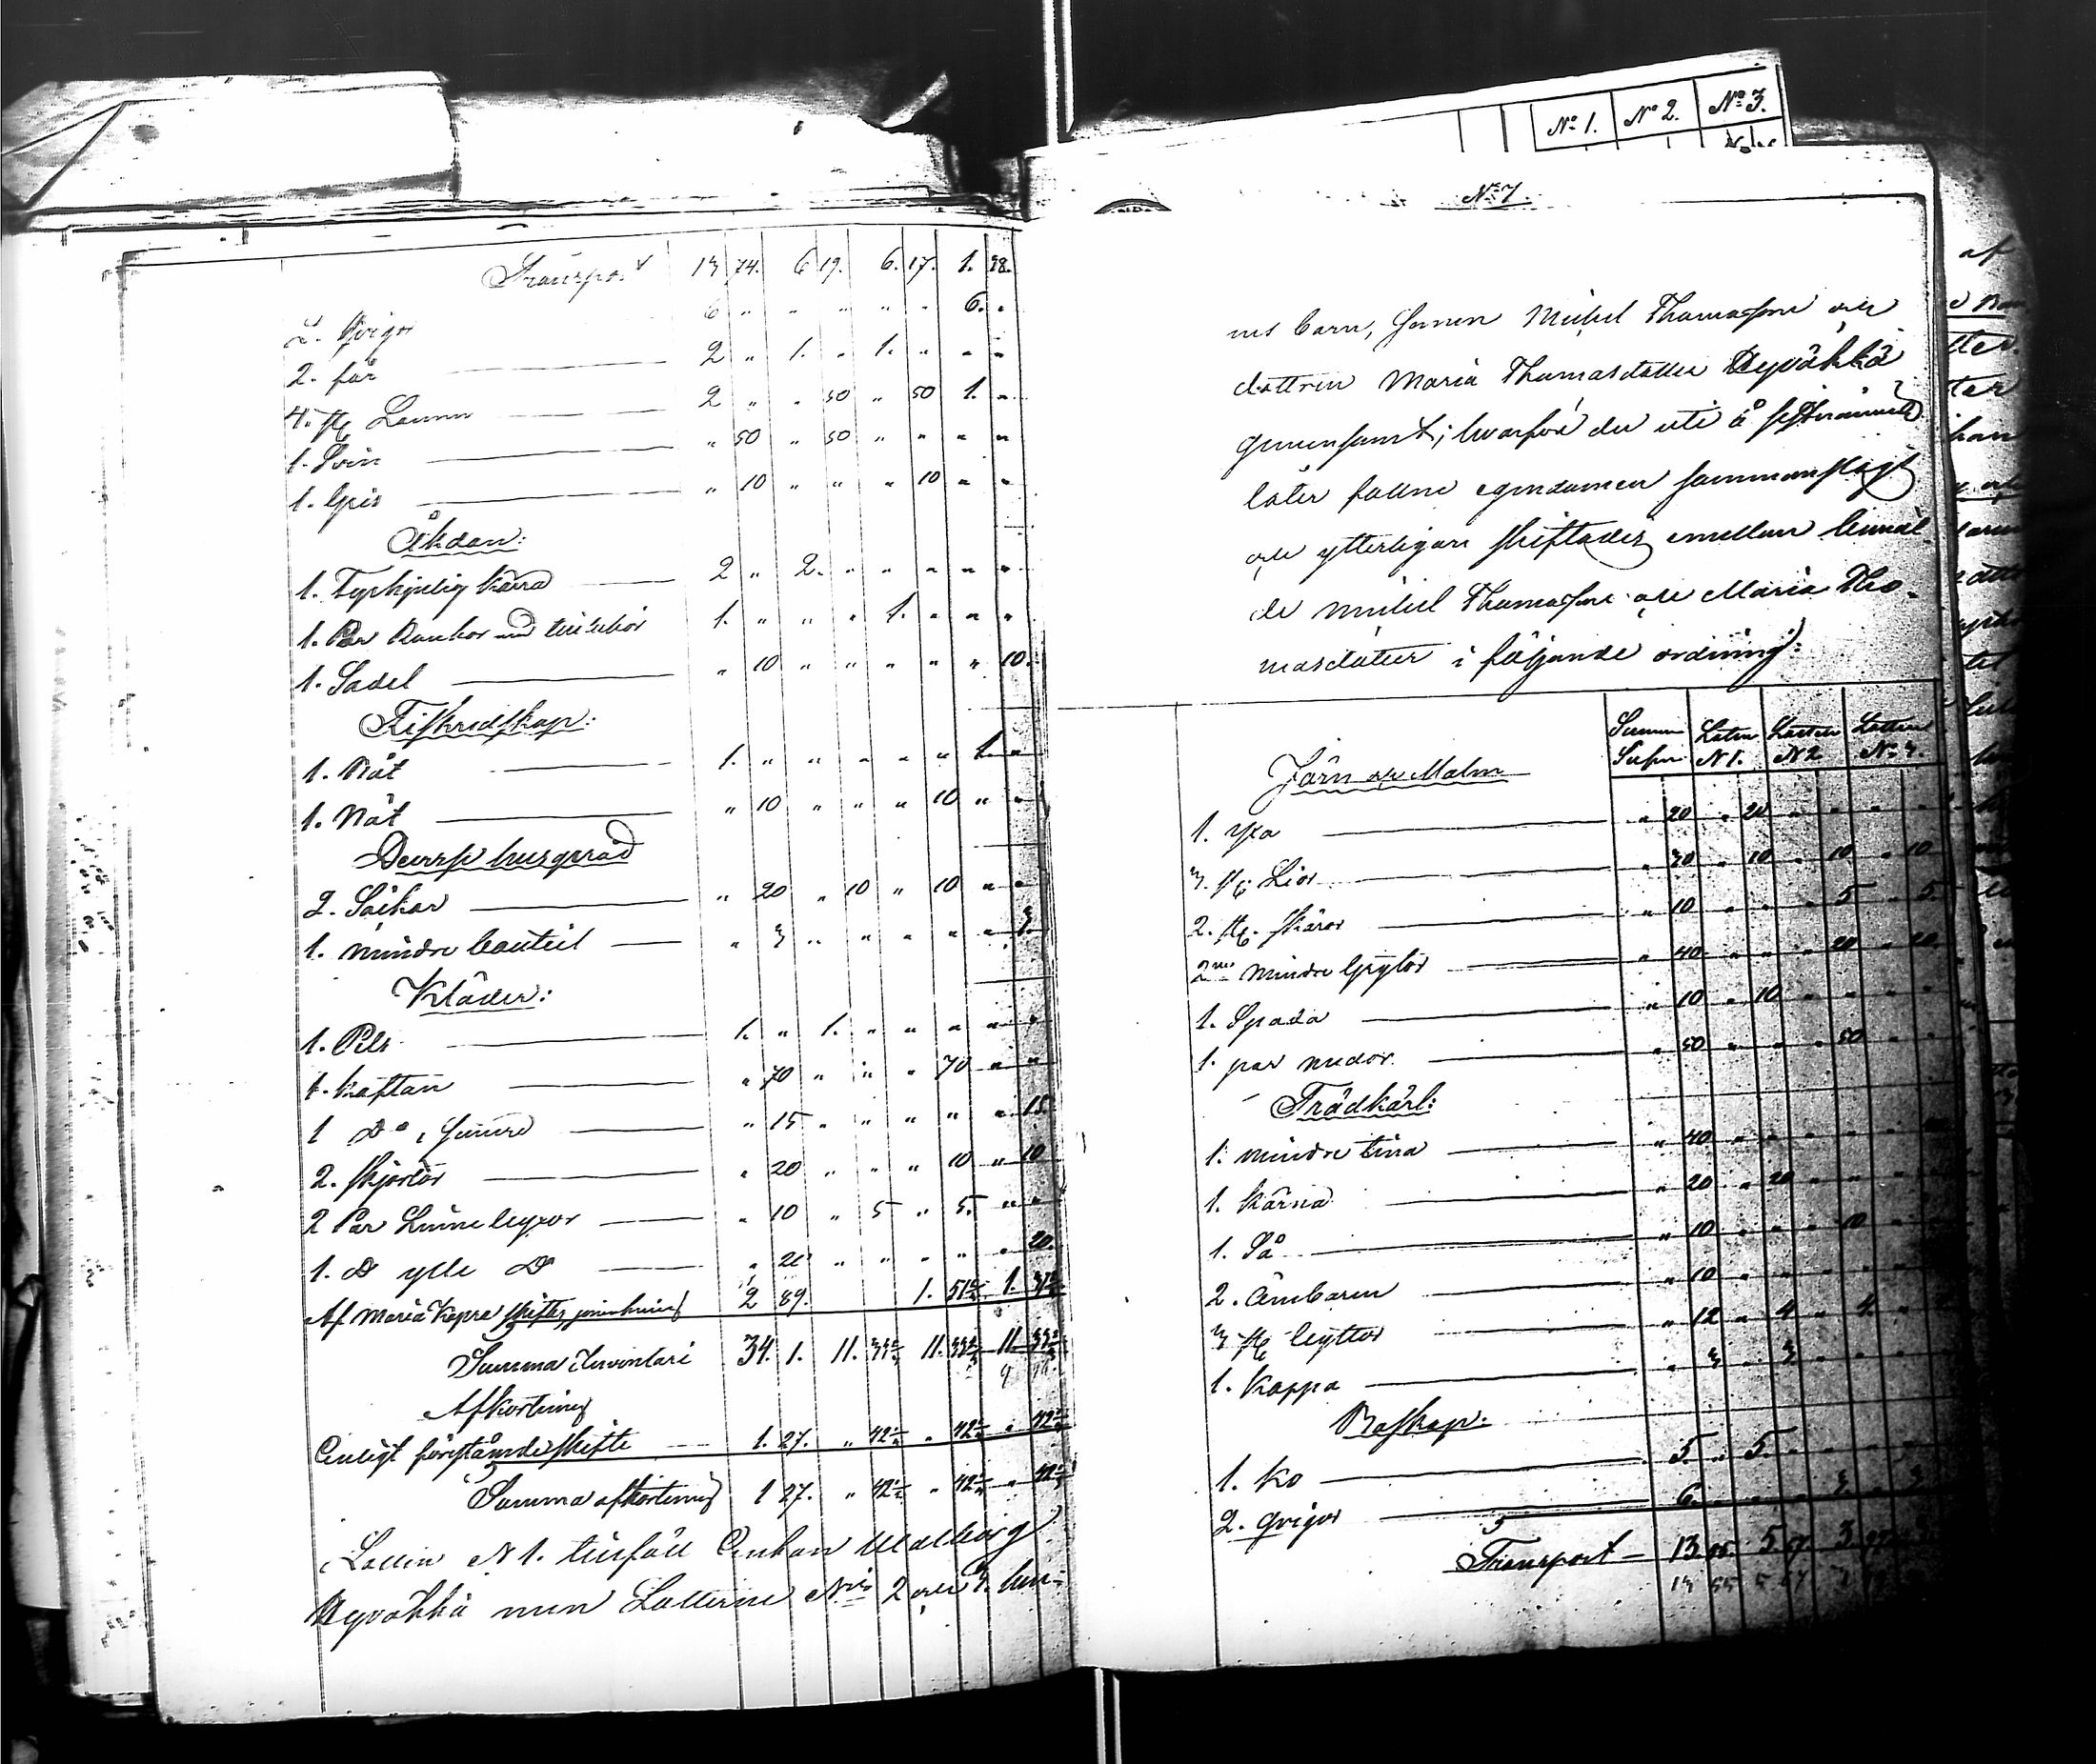 Transport 13 74. 6 19. 6. 17. 1. 38.
2. Qvigor 6 " " " " " 6. "
2. får 2 " 1. " 1. " " "
4. st Lamm 2 " " 50 " 50 1. "
1. Svin " 50 " 50 " " " "
1. Gris " 10 " " " 10 " "
Åkdon:
1. Tyrkjulig kärra 2 " 2. " " " " "
1. Par Bankor med tillbehör 1. " " " 1. " " "
1. Sadel " 10 " " " " " 10.
Fiskredskap:
1. Nöt 1. " " " " " 1. "
1. Nät " 10 " " " 10 " "
Diverse husgeråd
2. Säckar " 20 " 10 " 10 " "
1. mindre bouteil " 3 " " " " " 3.
Kläder:
1. Pels 1. " 1. " " " " "
1. Kaftan " 70 " " " 70 " "
1 Do, sämre " 15 " " " " " 15
2. Skjortor " 20 " " " 10 " 10
2 Par Linne byxor " 10 " 5 " 5. " "
1. Do ylle Do " 20 " " " " " 20.
Af Maria Kepsa skifter 2 89. 1. 51 1. 37
Summa Inventarie 34. 1. 11. 33 11. 33 11 33
Afkortning
Enligt förestående skifte 1. 27. " 42 " 42 " 42
Summa afkortning 1 27. " 42 " 42 " 42
Lotten N 1. tillföll Enkan Walborg
Ryväkkä men Lotterne Nris 2 och 3. hen-
No 1. No 2. No 3.
No 7.
nes barn, sonen Michel Thomasson och
dottren Maria Thomasdotter Ryväkkä
gemensamt; hvarföre de uti
loter fallne egendomen sammanslogs
och ytterligare skiftades emellan bemäl-
de Michel Thomasson och Maria Tho-
masdotter i följande ordning:
Summa Lotten Lotten Lotten
N 1. N 2. No 3.
Järn och Malm
1. Yxa " 20 " 20 " " " "
3. st Lior " 30 " 10 " 10 " 10
2. st. Skäror " 10 " " " 5 " 5.
2ne mindre Grytor " 40 " " " 20 " 20.
1. Spada " 10 " 10 " " " "
1. par medor " 50 " " " 50 " "
Trädkärl:
1. mindre tina " 40 " " " "
1. Kärna " 20 " 20 " " " "
1. Så " 10 " " " 10 " "
2. Ämbaren " 10 " " " "
3 st byttor " 12 " 4 " 4 "
1. Kappa " 3 " 3 " " " "
Boskap:
1. Ko 5. " 5. " " " "
2. Qvigor 6. " " " 3. " 3
Transport 13 5 67 3